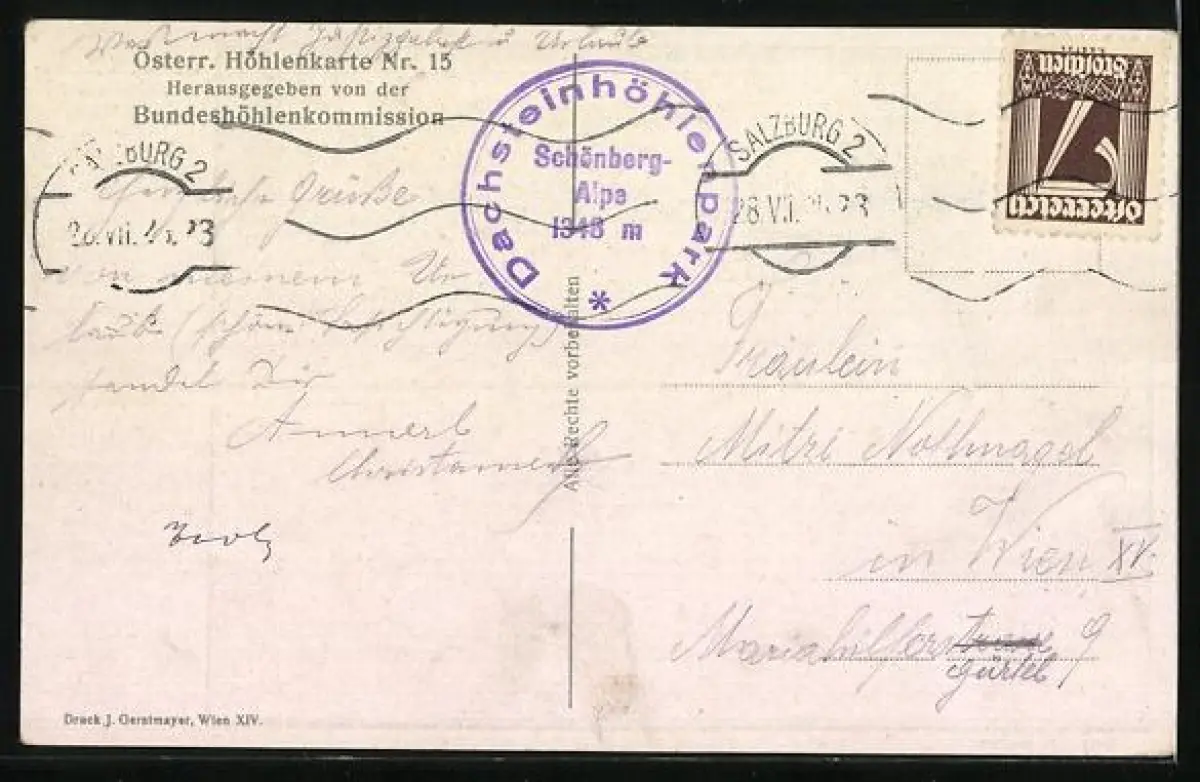 Österr. Höhlenkarte Nr. 15
Herausgegeben von der
Bundeshöhlenkommission
Dachsteinhöhlenpark
Schönberg-
Alpe
1345 m
*
SALZBURG 2
SALZBURG 2
28.VII.
Groschen
7
Österreich
Grüße
von meinem Ur
laub (schöne
sendet Dir
Annerl
Alle Rechte vorbehalten
Fräulein
Mitzi Nothnagel
in Wien XV.
Mariahilferstrasse 9
gürtel
Druck J. Gerstmayer, Wien XIV.